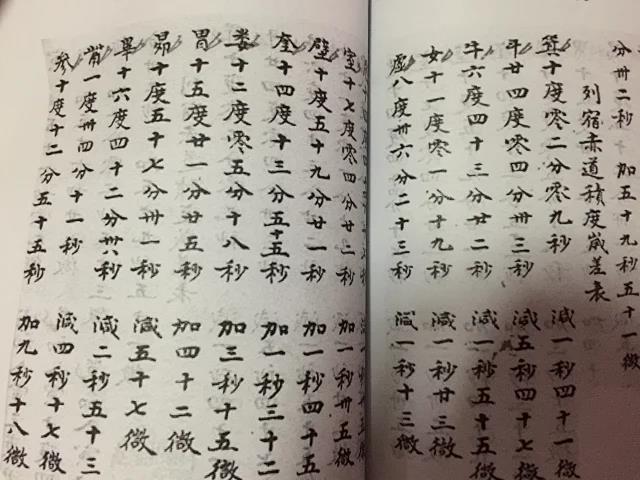 分卅二秒 加五十九秒五十一微
列宿赤道積度歲差表
箕十度零二分零九秒 減一秒四十一微
斗廿四度零四分卅三秒 減五秒四十七微
牛六度四十三分廿二秒 減一秒五十七微
女十一度零一分十九秒 減一秒廿三微
虛八度卅六分二十三秒 減一秒十三微
室十七度零四分廿二秒 加一秒卅五微
壁十度五十九分廿一秒 加一秒四十五
奎十四度十三分五十五秒 加一秒三十二
娄十二度零五分十八秒 加三秒十五微
胃十五度廿一分廿五秒 加四十二微
昴十度五十七分卅一秒 減五十七微
畢十六度四十二分卅六秒 減二秒五十三
觜一度卅四分十一秒 減四秒十七微
参十度十二分五十五秒 加九秒十八微